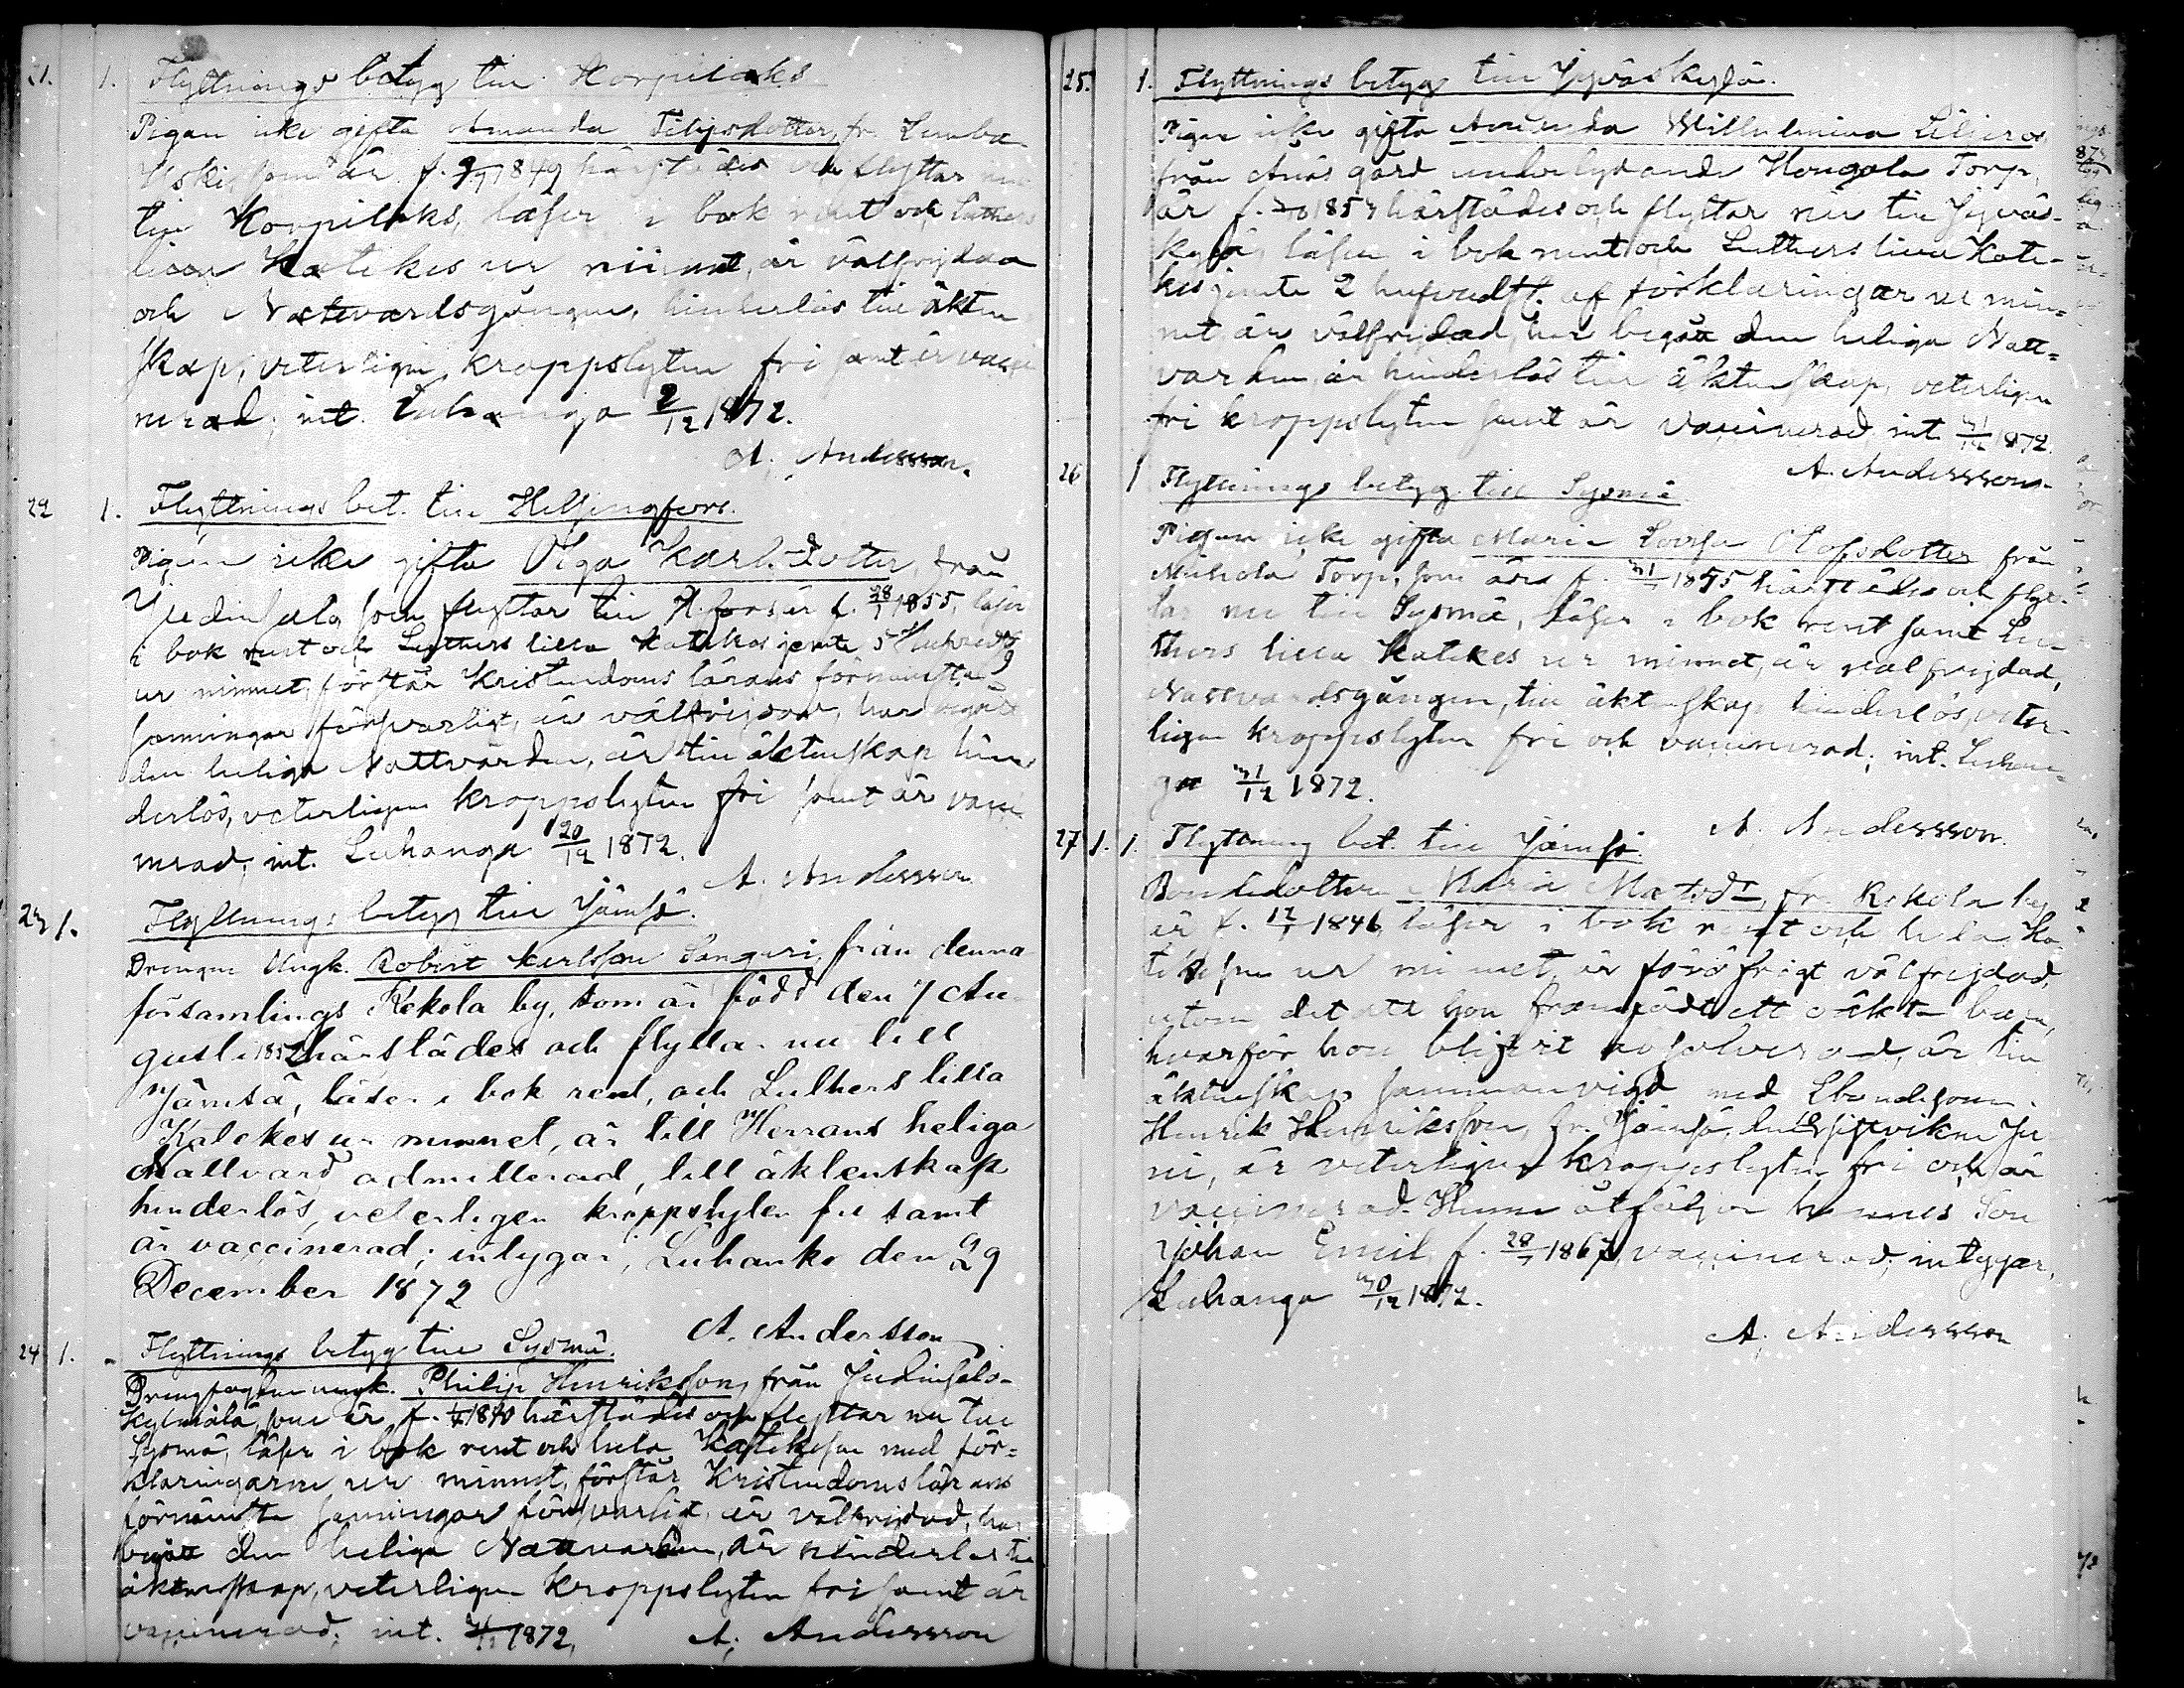 21. 1. Flyttnings betyg till Korpilaks
Pigan icke gifta Amanda Filipsdotter, fr.
som är f. 1849 härstädes och flyttar nu
till Korpilaks, läser i bok rent och Luthers
lilla Katekes ur minnet, är välfrejdad
och Nattvardsgången, hinderlös till äkten
skap, veterligen kroppslyten fri samt är vacci
nerad; int. Luhanga 2/12 1872.
A. Andersson.
22 1. Flyttnings bet. till Helsingfors.
Pigan icke gifta Olga Karls-dotter, från
Judinsalo, som flyttar till H.fors, är f. 28/1 1855, läser
i bok rent och Luthers lilla Katekes jemte 5 Hufvudst.
ur minnet, förstår Kristendoms lärans förnämsta
sanningar försvarligt, är välfrejdad, har begått
den heliga Nattvarden, är till äktenskap hin
derlös, veterligen kroppslyten fri samt är vacci
nerad; int. Luhanga 20/12 1872.
A. Andersson
23 1. Flyttnings betyg till Jämsä.
Drengen Ungk. Robert Karlsson Sanguri, från denna
församlings Kekola by, som är född den 7 Au
gusti 1852 härstädes och flyttar nu till
Jämsä, läser i bok rent, och Luthers lilla
Katekes ur minnet, är till Herrans heliga
Nattvard admitterad, till äktenskap
hinderlös, veterligen kroppslyten fri samt
är vaccinerad; intygar, Luhanko den 29
December 1872
A. Andersson
24 1. Flyttnings betyg till Sysmä.
ungk. Philip Henriksson, från Judinsalo-
som är f. 1840 härstädes och flyttar nu till
Sysmä, läser i bok rent och hela Katekesen med för=
klaringarne ur minnet, förstår Kristendomslärans
förnämsta sanningar försvarligt, är välfrejdad, har
begått den heliga Nattvarden, är hinderlös till
äktenskap, veterligen kroppslyten fri samt är
vaccinerad; int. 1872,
A. Andersson
25. 1. Flyttnings betyg till Jyväskylä.
Pigan icke gifta Amanda Wilhelmina Lilieros,
från Anäs gård underlydande Hongola Torp,
är f. härstädes och flyttar nu till Jyväs-
kylä, läser i bok rent och Luthers lilla Kate-
kes jemte 2 hufvudst. af förklaringar ur min=
net, är välfrejdad, har begått den heliga Natt=
varden, är hinderlös till äktenskap, veterligen
fri kroppslyten samt är vaccinerad; int. 31/12 1872.
A. Andersson.
26 1 Flyttnings betyg till Sysmä
Pigan icke gifta Maria Lovisa Olofsdotter från
Torp, som är f. härstädes och flyt-
tar nu till Sysmä, läser i bok rent samt Lu-
thers lilla Katekes ur minnet, är välfrejdad,
Nattvardsgången, till äktenskap hinderlös, veter-
ligen kroppslyten fri och vaccinerad; int. Luhan=
ga 31/12 1872.
A. Andersson.
27 1. 1. Flyttning bet. till Jämsä.
Bondedottren Maria fr. Kekola by
är f. 12/1 1846, läser i bok rent och hela Ka
tekesen ur minnet, är för öfrigt välfrejdad,
utom det att hon framfödt ett oäkta barn,
hvarför hon blifvit absolverad, är till
äktenskap sammanvigd med Ebondesonen
Henrik Henriksson, fr. Jämsä,
är veterligen kroppslyten fri och är
vaccinerad. Henne åtföljer hennes Son
Johan Emil, f. 28/7 1867, vaccinerad; intygar,
Luhanga 30/12 1872.
A. Andersson